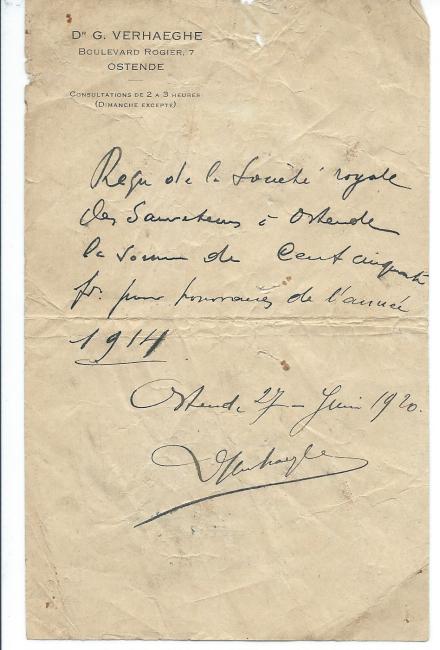 Dr G. VERHAEGHE
BOULEVARD ROGIER, 7
OSTENDE
CONSULTATIONS DE 2 A 3 HEURES
(DIMANCHE EXCEPTÉ)
Reçu de la Société royale
des Sauveteurs à Ostende
la somme de Cent cinquante
fr. pour honoraires de l'année
1914
Ostende 27 - Juin 1920.
Verhaeghe